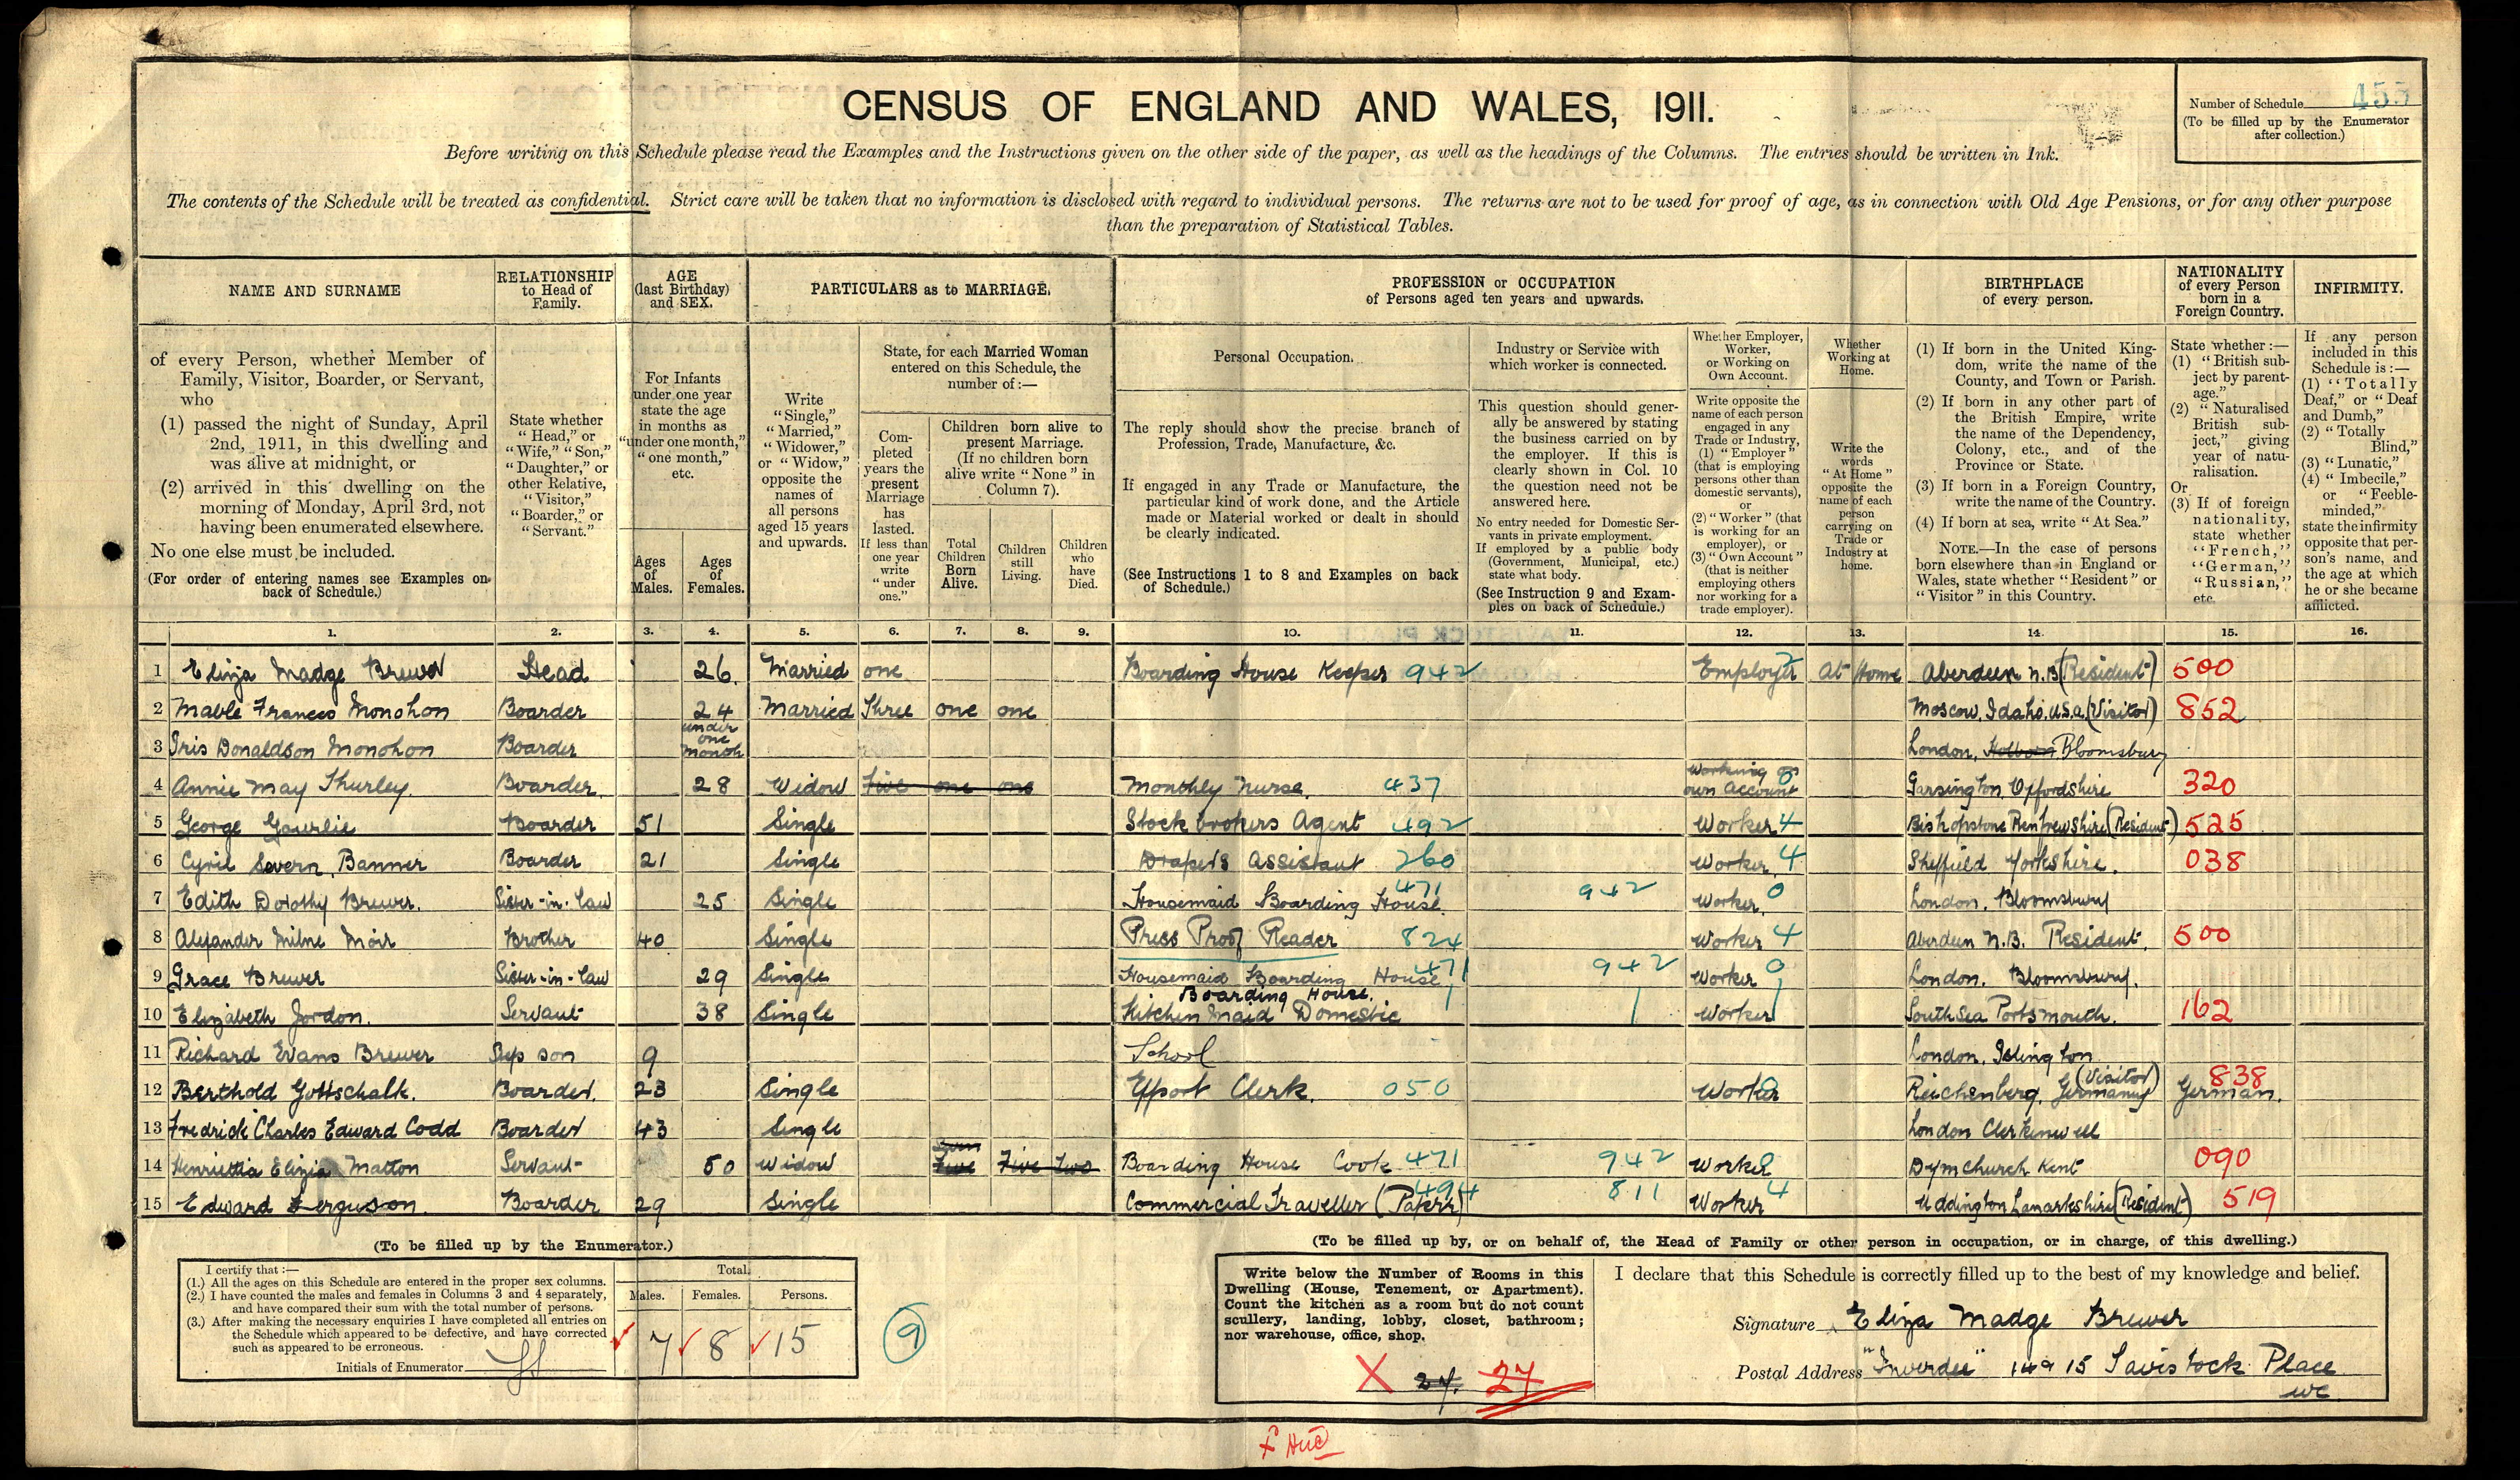 CENSUS OF ENGLAND AND WALES, 1911.
Number of Schedule 455
(To be filled up by the Enumerator after collection.)
Before writing on this Schedule please read the Examples and the Instructions given on the other side of the paper, as well as the headings of the Columns. The entries should be written in Ink.
The contents of the Schedule will be treated as confidential. Strict care will be taken that no information is disclosed with regard to individual persons. The returns are not to be used for proof of age, as in connection with Old Age Pensions, or for any other purpose
than the preparation of Statistical Tables.
NAME AND SURNAME
RELATIONSHIP to Head of Family.
AGE (last Birthday) and SEX.
PARTICULARS as to MARRIAGE.
PROFESSION or OCCUPATION
of Persons aged ten years and upwards.
BIRTHPLACE of every person.
NATIONALITY of every Person born in a Foreign Country.
INFIRMITY.
of every Person, whether Member of Family, Visitor, Boarder, or Servant, who
(1) passed the night of Sunday, April 2nd, 1911, in this dwelling and was alive at midnight, or
(2) arrived in this dwelling on the morning of Monday, April 3rd, not having been enumerated elsewhere.
No one else must be included.
(For order of entering names see Examples on back of Schedule.)
State whether "Head," or "Wife," "Son," "Daughter," or other Relative, "Visitor," "Boarder," or "Servant."
For Infants under one year state the age in months as "under one month," "one month," etc.
Ages of Males.
Ages of Females.
Write "Single," "Married," "Widower," or "Widow," opposite the names of all persons aged 15 years and upwards.
State, for each Married Woman entered on this Schedule, the number of :—
Completed years the present Marriage has lasted. If less than one year write "under one."
Children born alive to present Marriage. (If no children born alive write "None" in Column 7).
Total Children Born Alive.
Children still Living.
Children who have Died.
Personal Occupation.
The reply should show the precise branch of Profession, Trade, Manufacture, &c.
If engaged in any Trade or Manufacture, the particular kind of work done, and the Article made or Material worked or dealt in should be clearly indicated.
(See Instructions 1 to 8 and Examples on back of Schedule.)
Industry or Service with which worker is connected.
This question should generally be answered by stating the business carried on by the employer. If this is clearly shown in Col. 10 the question need not be answered here.
No entry needed for Domestic Servants in private employment.
If employed by a public body (Government, Municipal, etc.) state what body.
(See Instruction 9 and Examples on back of Schedule.)
Whether Employer, Worker, or Working on Own Account.
Write opposite the name of each person engaged in any Trade or Industry, (1) "Employer" (that is employing persons other than domestic servants), or (2) "Worker" (that is working for an employer), or (3) "Own Account" (that is neither employing others nor working for a trade employer).
Whether Working at Home.
Write the words "At Home" opposite the name of each person carrying on Trade or Industry at home.
(1) If born in the United Kingdom, write the name of the County, and Town or Parish.
(2) If born in any other part of the British Empire, write the name of the Dependency, Colony, etc., and of the Province or State.
(3) If born in a Foreign Country, write the name of the Country.
(4) If born at sea, write "At Sea."
NOTE.—In the case of persons born elsewhere than in England or Wales, state whether "Resident" or "Visitor" in this Country.
State whether :—
(1) "British subject by parentage."
(2) "Naturalised British subject," giving year of naturalisation.
Or
(3) If of foreign nationality, state whether "French," "German," "Russian," etc.
If any person included in this Schedule is :—
(1) "Totally Deaf," or "Deaf and Dumb,"
(2) "Totally Blind,"
(3) "Lunatic,"
(4) "Imbecile," or "Feeble-minded," state the infirmity opposite that person's name, and the age at which he or she became afflicted.
1. 2. 3. 4. 5. 6. 7. 8. 9. 10. 11. 12. 13. 14. 15. 16.
1 Eliza Madge Brewer Head 26. Married one Boarding House Keeper 942 Employer 2 At Home Aberdeen N.B (Resident) 500
2 Mable Frances Monohon Boarder 24 Married Three one one Moscow, Idaho. U.S.a. (Visitor) 852
3 Iris Donaldson Monohon Boarder under one Month London, Holborn Bloomsbury
4 Annie May Thurley. Boarder. 28 Widow five one one Monthly Nurse. 437 Working on own account 0 Garsington Oxfordshire 320
5 George Gourlie Boarder 51 Single Stock brokers Agent 492 Worker 4 Bishopstone Renfrewshire (Resident) 525
6 Cyril Severn Banner Boarder 21 Single Draper's Assistant 260 Worker 4 Sheffield Yorkshire. 038
7 Edith Dorothy Brewer. Sister-in-law 25 Single Housemaid Boarding House 471 942 Worker 0 London. Bloomsbury
8 Alexander Milne Moir Brother 40 Single Press Proof Reader 824 Worker 4 Aberdeen N.B. Resident. 500
9 Grace Brewer Sister-in-law 29 Single Housemaid Boarding House 471 942 Worker 0 London. Bloomsbury.
10 Elizabeth Jordon. Servant 38 Single Boarding House. Kitchen Maid Domestic Worker Southsea Portsmouth. 162
11 Richard Evans Brewer Step son 9 School London. Islington
12 Berthold Gottschalk. Boarder. 23 Single Export Clerk. 050 Worker Reichenberg, Germany (Visitor) 838 German.
13 Fredrick Charles Edward Codd Boarder 43 Single London Clerkenwell
14 Henriettia Elizia Matton Servant 50 Widow Seven Five Five Two Boarding House Cook 471 942 Worker Dymchurch Kent 090
15 Edward Ferguson. Boarder 29 Single Commercial Traveller (Paper) 494 811 Worker 4 Uddington Lanarkshire (Resident) 519
(To be filled up by the Enumerator.)
I certify that :—
(1.) All the ages on this Schedule are entered in the proper sex columns.
(2.) I have counted the males and females in Columns 3 and 4 separately, and have compared their sum with the total number of persons.
(3.) After making the necessary enquiries I have completed all entries on the Schedule which appeared to be defective, and have corrected such as appeared to be erroneous.
Initials of Enumerator
Total.
Males. Females. Persons.
7 8 15
9
(To be filled up by, or on behalf of, the Head of Family or other person in occupation, or in charge, of this dwelling.)
Write below the Number of Rooms in this Dwelling (House, Tenement, or Apartment). Count the kitchen as a room but do not count scullery, landing, lobby, closet, bathroom; nor warehouse, office, shop.
X 27. 27
I declare that this Schedule is correctly filled up to the best of my knowledge and belief.
Signature Eliza Madge Brewer
Postal Address "Inverdee" 14 & 15 Tavistock Place
WC